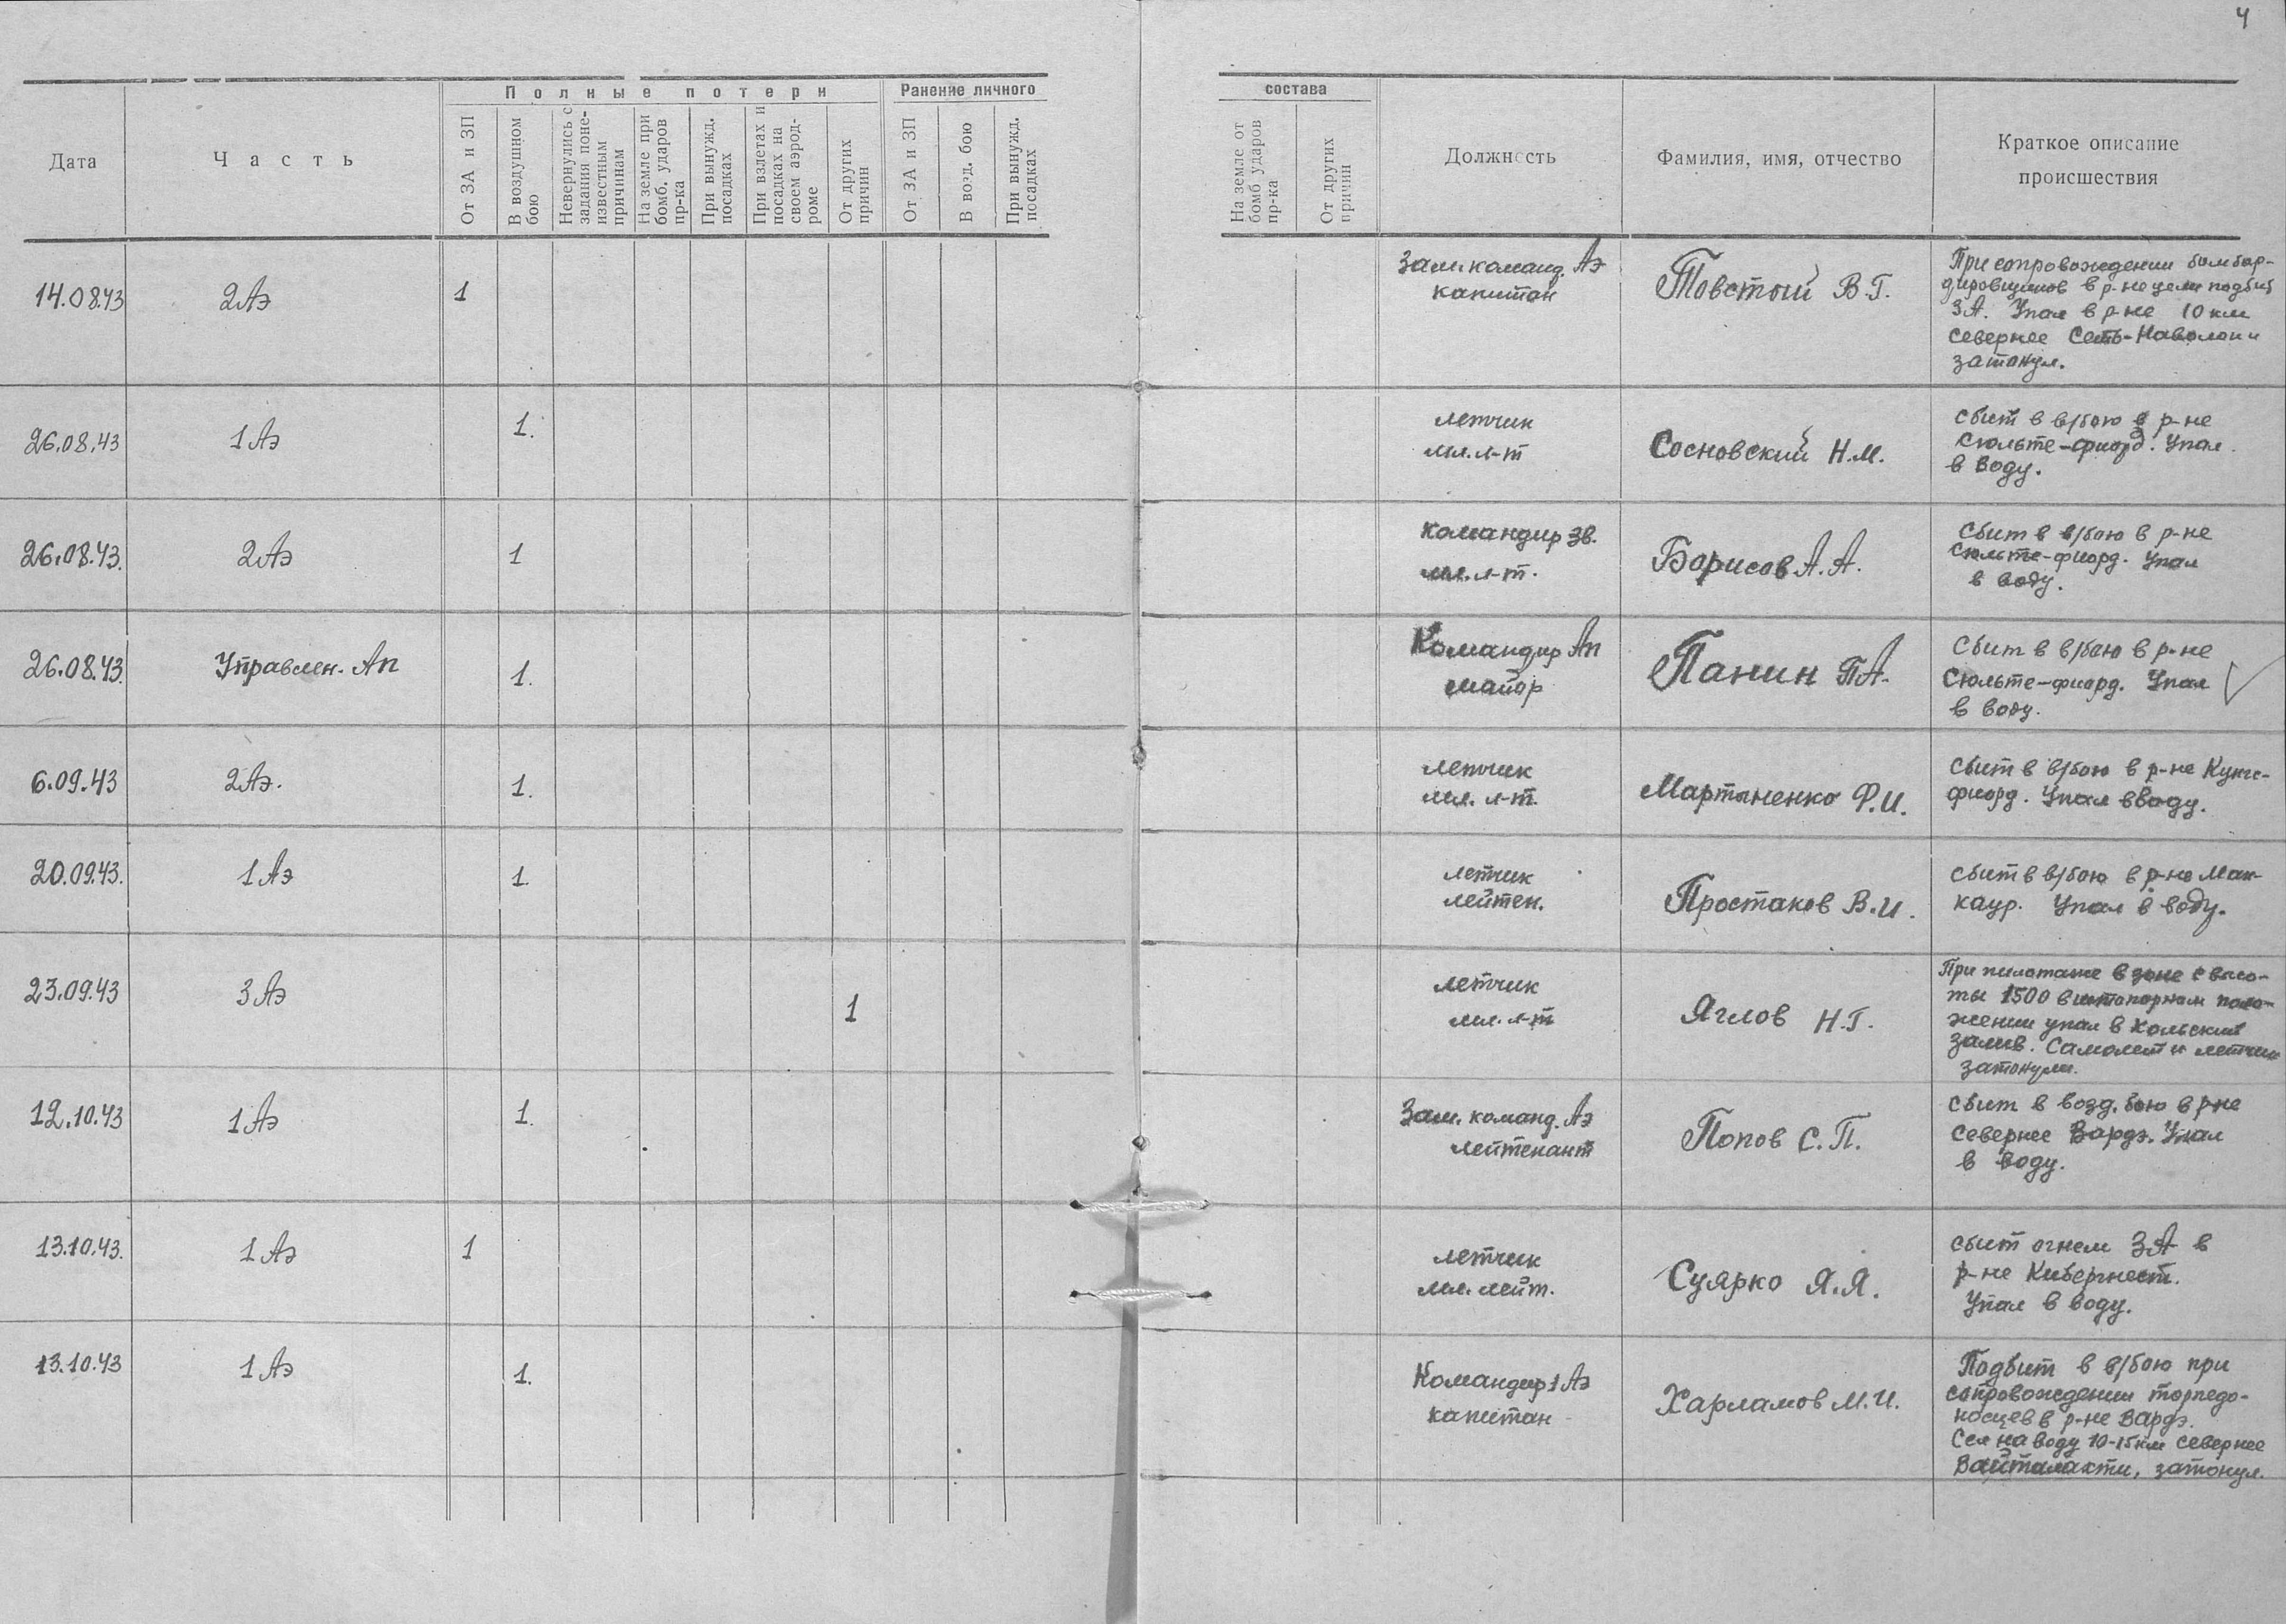 4
Полные потери
Ранение личного
состава
Дата
Часть
От ЗА и ЗП
В воздушном бою
Невернулись с задания поне-известным причинам
На земле при бомб. ударов пр-ка
При вынужд. посадках
При взлетах и посадках на своем аэрод-роме
От других причин
От ЗА и ЗП
В возд. бою
При вынужд. посадках
На земле от бомб ударов пр-ка
От других причин
Должность
Фамилия, имя, отчество
Краткое описание
происшествия
14.08.43 2Аэ 1 Зам. команд. Аэ Товстый В.Г. При сопровождении бомбар-
капитан дировщиков в р-не цели подбит
ЗА. Упал в р-не 10 км
севернее Сеть-Наволок и
затонул.
26.08.43 1Аэ 1. летчик Сосновский Н.М. Сбит в в/бою в р-не
мл. л-т Сюльте-фиорд. Упал
в воду.
26.08.43. 2Аэ 1 Командир Зв. Борисов А.А. Сбит в в/бою в р-не
мл. л-т. Сюльте-фиорд. Упал
в воду.
26.08.43. Управлен. Ап 1. Командир Ап Панин П.А. Сбит в в/бою в р-не
майор Сюльте-фиорд. Упал
в воду.
6.09.43 2Аэ. 1. летчик Мартыненко Ф.И. Сбит в в/бою в р-не Кунге-
мл. л-т. фиорд. Упал в воду.
20.09.43. 1Аэ 1. летчик Простаков В.И. Сбит в в/бою в р-не Мак-
лейтен. каур. Упал в воду.
23.09.43 3Аэ 1 летчик Яглов Н.Г. При пилотаже в зоне с высо-
мл. л-т ты 1500 в штопорном поло-
жении упал в Кольский
залив. Самолет и летчик
затонули.
12.10.43 1Аэ 1. Зам. команд. Аэ Попов С.П. Сбит в возд. бою в р-не
лейтенант севернее Вардэ. Упал
в воду.
13.10.43. 1Аэ 1 летчик Суярко Я.Я. сбит огнем ЗА в
мл. лейт. р-не Кибергнест.
Упал в воду.
13.10.43 1Аэ 1. Командир 1Аэ Харламов М.И. Подбит в в/бою при
капитан сопровождении торпедо-
носцев в р-не Вардэ.
Сел на воду 10-15км севернее
Вайталахти, затонул.